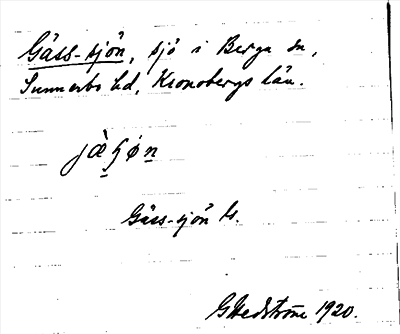 Gäss-sjön, sjö i Berga sn,
Sunnerbo hd, Kronobergs län.
Gäss-sjön
G Hedström 1920.